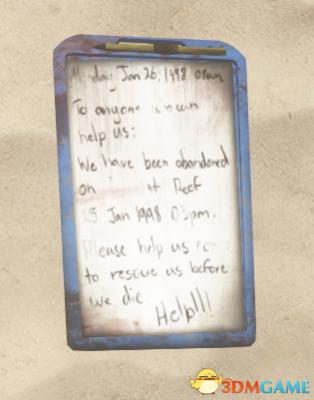 Monday Jan 26; 1998 08am
To anyone can
help us:
We have been abandoned
on Reef
25 Jan 1998 03pm.
Please help us
to rescue us before
we die.
Help!!!
3DMGAME